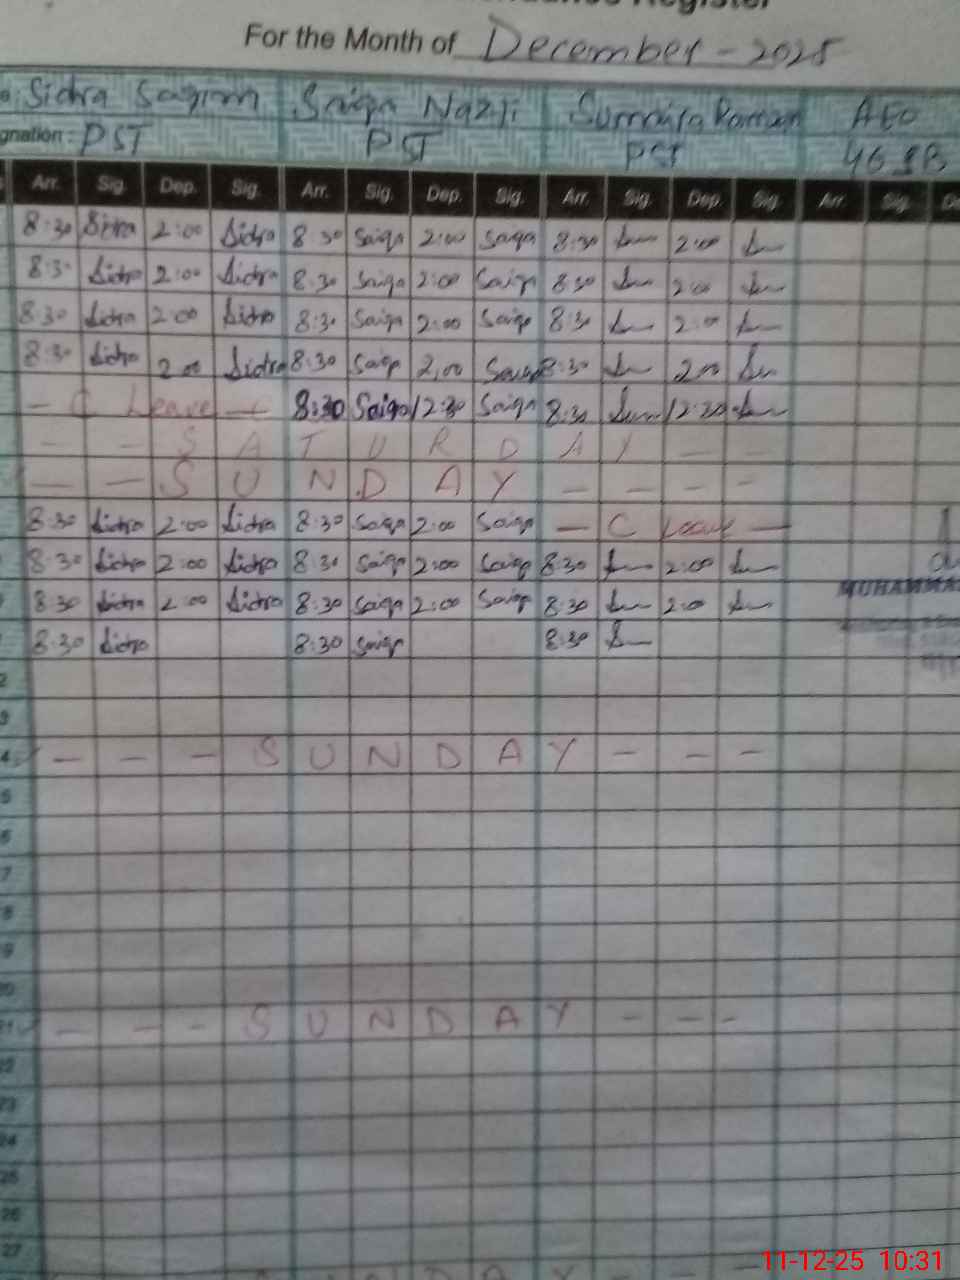 Register
For the Month of December - 2025
Sidra Saqim Saiqa Nazli Sumaira Raman AEO
gnation : PST PST PST 46 SB
Arr. Sig. Dep. Sig. Arr. Sig. Dep. Sig. Arr. Sig. Dep. Sig. Arr. Sig. De
8:30 Sidra 2:00 Sidra 8 30 Saiqa 2:00 Saiqa 8:30 2:00
8:30 Sidra 2:00 Sidra 8:30 Saiqa 2:00 Saiqa 8:30 2:00
8:30 Sidra 2:00 Sidra 8:30 Saiqa 2:00 Saiqa 8:30 2:00
8:30 Sidra 2:00 Sidra 8:30 Saiqa 2:00 Saiqa 8:30 2:00
- C Leave - 8:30 Saiqa 12:30 Saiqa 8:30 12:30
- - S A T U R D A Y - -
- - S U N D A Y - - - -
8:30 Sidra 2:00 Sidra 8:30 Saiqa 2:00 Saiqa - C Leave -
8:30 Sidra 2:00 Sidra 8:30 Saiqa 2:00 Saiqa 8:30 2:00
8:30 Sidra 2:00 Sidra 8:30 Saiqa 2:00 Saiqa 8:30 2:00
MUHAMMA
8:30 Sidra 8:30 Saiqa 8:30
2
3
4 - - - S U N D A Y - - -
5
6
7
8
9
20
21 - - - S U N D A Y - - -
22
23
24
25
26
27
U N D A Y
11-12-25 10:31